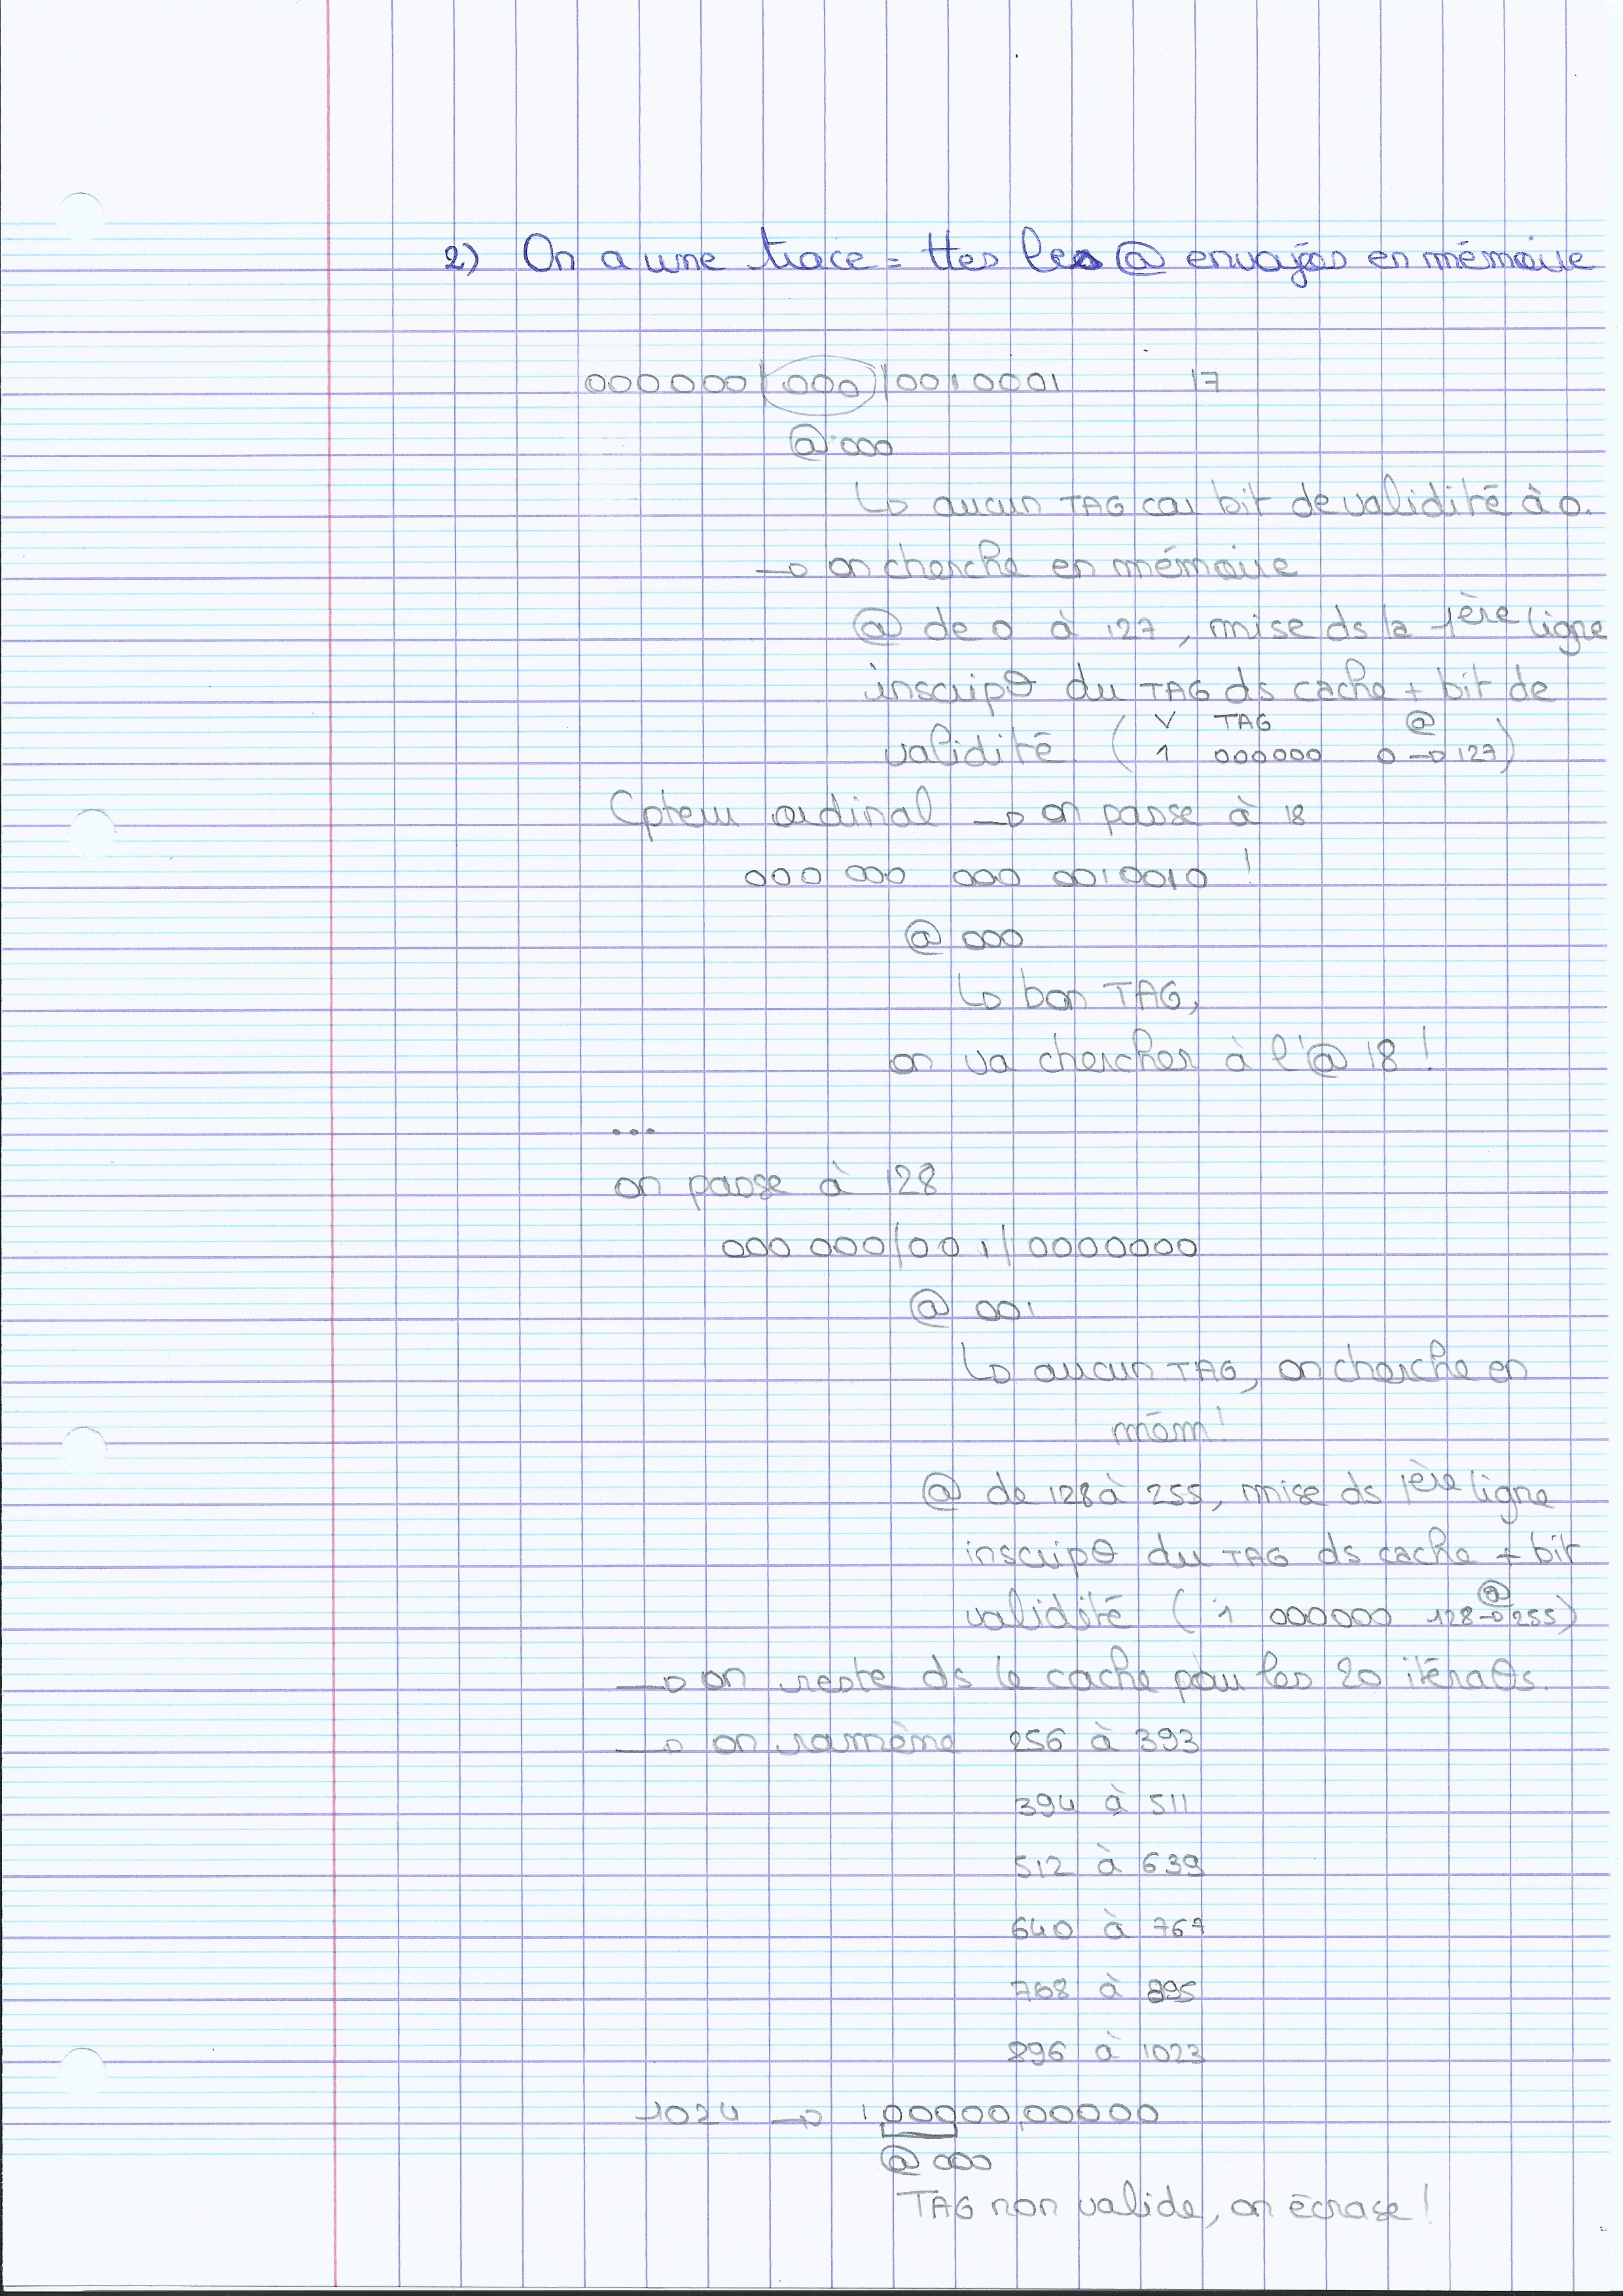 2) On a une trace = ttes les @ envoyés en mémoire
000000|000|0010001 17
@ 000
↳ aucun TAG car bit de validité à 0.
→ on cherche en mémoire
@ de 0 à 127, mise ds la 1ère ligne
inscripθ du TAG ds cache + bit de
V TAG @
validité ( 1 000000 0 → 127)
Cpteur ordinal → on passe à 18
000 000 000 0010010 !
@ 000
↳ bon TAG,
on va chercher à l'@ 18 !
...
on passe à 128
000 000|001|0000000
@ 001
↳ aucun TAG, on cherche en
mém !
@ de 128 à 255, mise ds 1ère ligne
inscripθ du TAG ds cache + bit
@
validité ( 1 000000 128 → 255)
→ on reste ds le cache pour les 20 itéraθs.
→ on ramène 256 à 393
394 à 511
512 à 639
640 à 767
768 à 895
896 à 1023
1024 → 10000000000
@ 000
TAG non valide, on écrase !